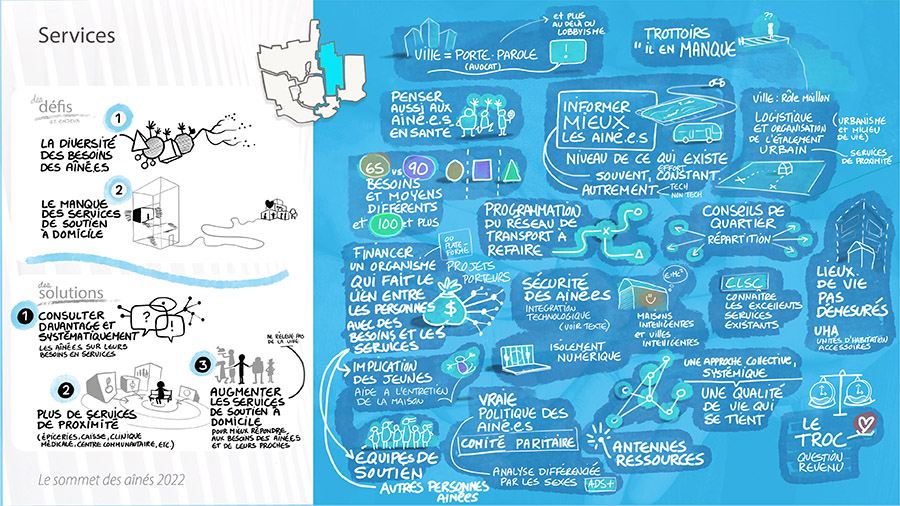 Services
des
défis
et enjeux
1
LA DIVERSITÉ
DES BESOINS
DES AÎNÉ.E.S
2
LE MANQUE
DES SERVICES
DE SOUTIEN
À DOMICILE
des
solutions
1
CONSULTER
DAVANTAGE ET
SYSTÉMATIQUEMENT
LES AÎNÉ.E.S SUR LEURS
BESOINS EN SERVICES
2
PLUS DE SERVICES
DE PROXIMITÉ
(ÉPICERIES, CAISSE, CLINIQUE
MÉDICALE, CENTRE COMMUNAUTAIRE, ETC.)
NE RELÈVE PAS
DE LA VILLE
3
AUGMENTER
LES SERVICES
DE SOUTIEN À
DOMICILE
POUR MIEUX RÉPONDRE
AUX BESOINS DES AÎNÉ.E.S
ET DE LEURS PROCHES
Le sommet des aînés 2022
VILLE = PORTE-PAROLE
(AVOCAT)
et PLUS
AU DELÀ DU
LOBBYISME
!
TROTTOIRS
"IL EN MANQUE"
??
PENSER
AUSSI AUX
AÎNÉ.E.S
EN SANTÉ
INFORMER
MIEUX
LES AÎNÉ.E.S
NIVEAU DE CE QUI EXISTE
SOUVENT, EFFORT CONSTANT.
AUTREMENT
TECH
NON TECH
VILLE: RÔLE MAILLON
LOGISTIQUE
ET ORGANISATION
DE L'ÉTALEMENT
URBAIN
(URBANISME
et MILIEU
DE VIE)
SERVICES
DE PROXIMITÉ
65 vs 90
BESOINS
ET MOYENS
DIFFÉRENTS
et 100 et PLUS
PROGRAMMATION
DU RÉSEAU DE
TRANSPORT À
REFAIRE
CONSEILS DE
QUARTIER
RÉPARTITION
LIEUX
DE VIE
PAS
DÉMESURÉS
UHA
UNITÉS D'HABITATION
ACCESSOIRES
FINANCER
UN ORGANISME
QUI FAIT LE
LIEN ENTRE
LES PERSONNES
AVEC DES
BESOINS ET LES
SERVICES
OU
PLATE-
FORME
PROJETS
PORTEURS
$
SÉCURITÉ
DES AÎNÉ.E.S
INTÉGRATION
TECHNOLOGIQUE
(VOIR TEXTE)
E=MC²
MAISONS
INTELLIGENTES
et VILLES
INTELLIGENTES
ISOLEMENT
NUMÉRIQUE
CLSC
CONNAÎTRE
LES EXCELLENTS
SERVICES
EXISTANTS
IMPLICATION
DES JEUNES
AIDE À L'ENTRETIEN
DE LA MAISON
ÉQUIPES DE
SOUTIEN
AUTRES PERSONNES
AINÉES
VRAIE
POLITIQUE DES
AINÉ.E.S
COMITÉ PARITAIRE
ANALYSE DIFFÉRENCIÉE
PAR LES SEXES ADS+
UNE APPROCHE COLLECTIVE,
SYSTÉMIQUE
UNE QUALITÉ
DE VIE QUI
SE TIENT
ANTENNES
RESSOURCES
LE
TROC
QUESTION
REVENU